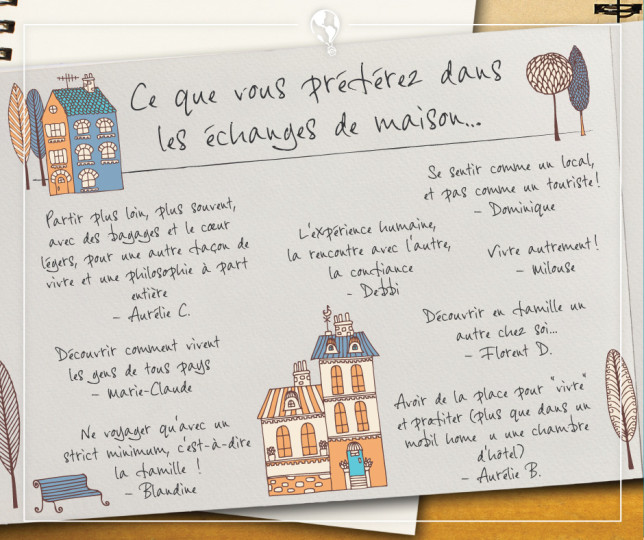 Ce que vous préférez dans
les échanges de maison...
Partir plus loin, plus souvent,
avec des bagages et le cœur
légers, pour une autre façon de
vivre et une philosophie à part
entière
- Aurélie C.
Découvrir comment vivent
les gens de tous pays
- Marie-Claude
Ne voyager qu'avec un
strict minimum, c'est-à-dire
la famille !
- Blandine
L'expérience humaine,
la rencontre avec l'autre,
la confiance
- Debbi
Se sentir comme un local,
et pas comme un touriste!
- Dominique
Vivre autrement!
- Milouse
Découvrir en famille un
autre chez soi...
- Florent D.
Avoir de la place pour "vivre"
et profiter (plus que dans un
mobil home u une chambre
d'hôtel)
- Aurélie B.